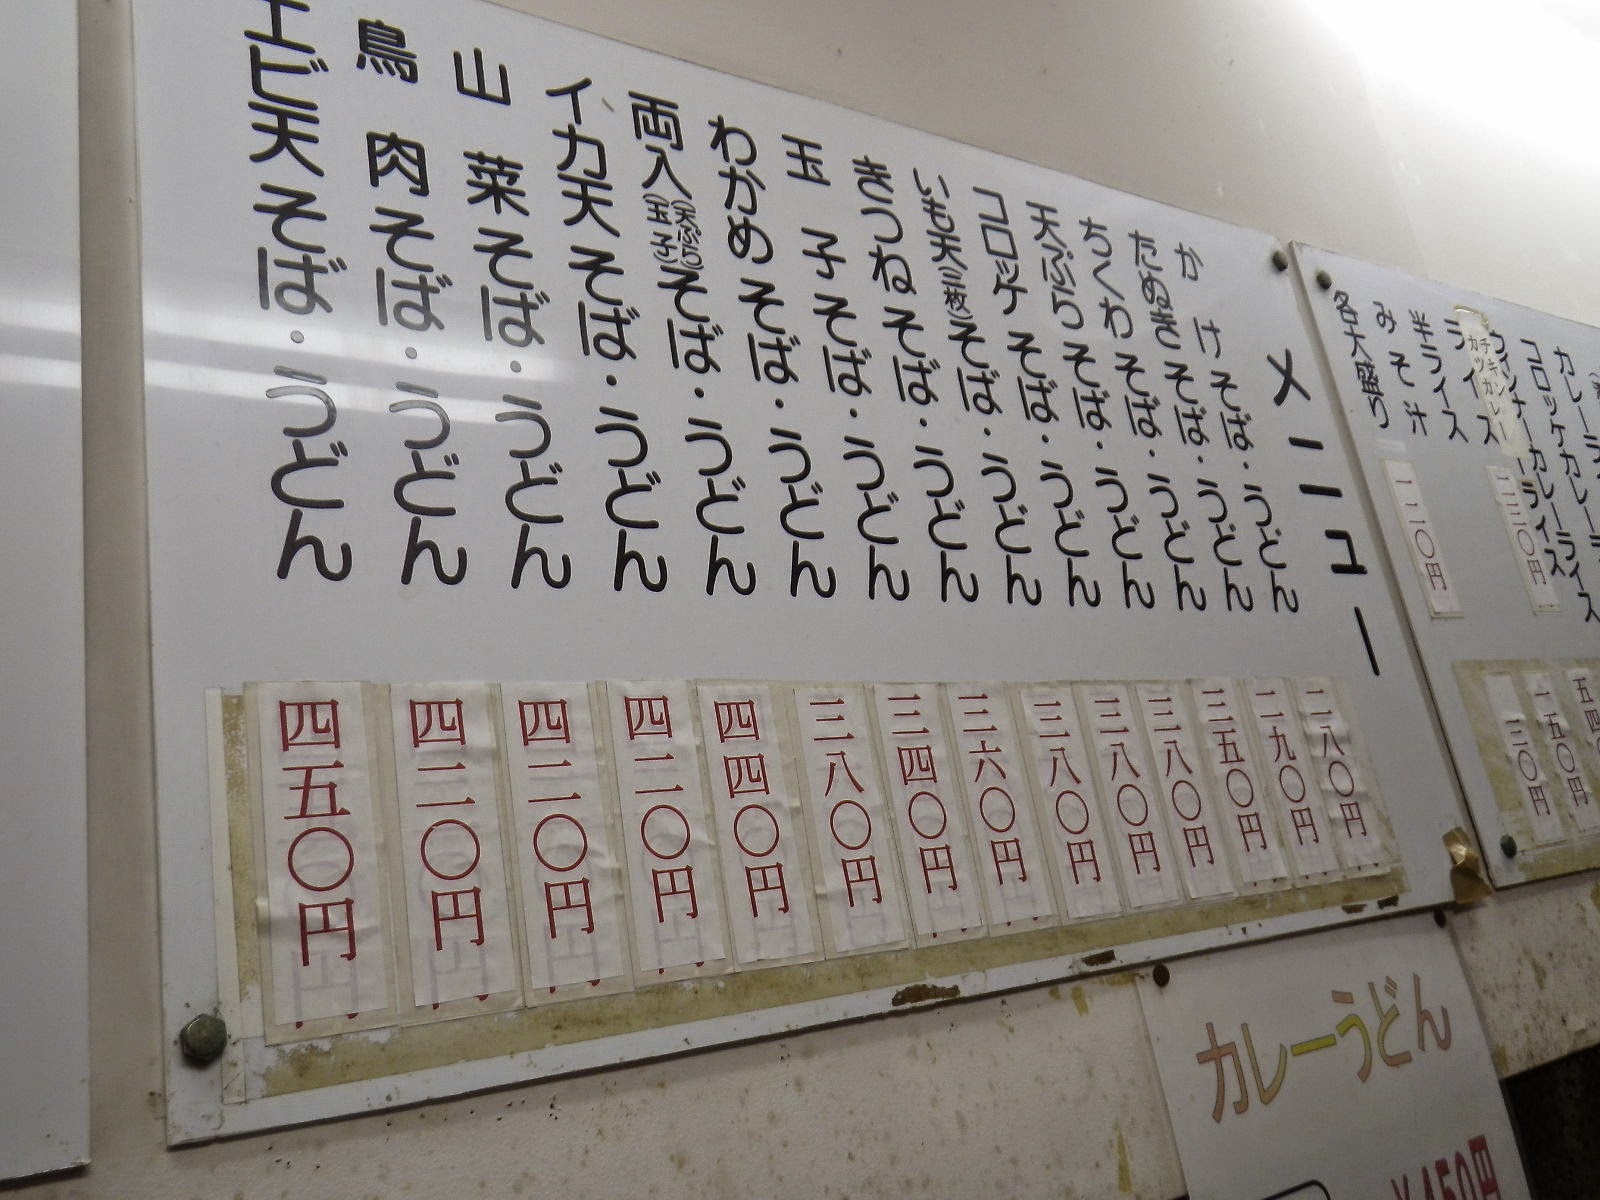 コロッケカレーライス
チキン
カツカレー
ライス
半ライス
みそ汁
各大盛り
一五〇円
メニュー
かけそば・うどん 二八〇円
たぬきそば・うどん 二九〇円
ちくわそば・うどん 三五〇円
天ぷらそば・うどん 三八〇円
コロッケそば・うどん 三八〇円
いも天(三枚)そば・うどん 三八〇円
きつねそば・うどん 三六〇円
玉子そば・うどん 三四〇円
わかめそば・うどん 三八〇円
両入(天ぷら)(玉子)そば・うどん 四四〇円
イカ天そば・うどん 四二〇円
山菜そば・うどん 四二〇円
鳥肉そば・うどん 四二〇円
エビ天そば・うどん 四五〇円
カレーうどん
¥450円